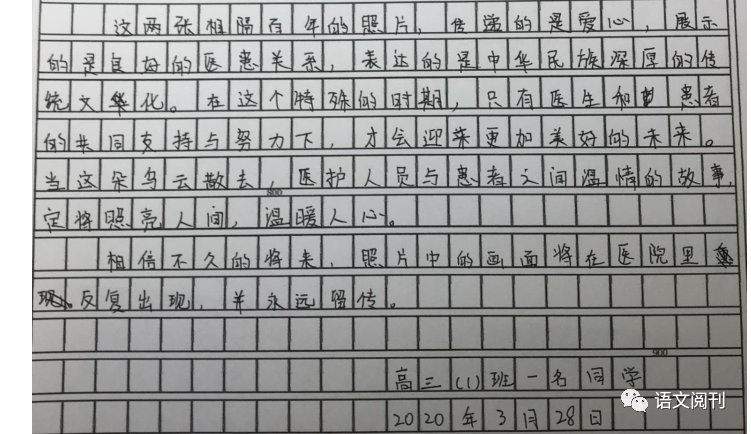 这两张相隔百年的照片，传递的是爱心，展示
的是良好的医患关系，表达的是中华民族深厚的传
统文化。在这个特殊的时期，只有医生和患者
的共同支持与努力下，才会迎来更加美好的未来。
当这朵乌云散去，医护人员与患者之间温情的故事，
800
定将照亮人间，温暖人心。
相信不久的将来，照片中的画面将在医院里
反复出现，并永远留传。
900
高三（1）班一名同学
2020年3月28日
语文阅刊